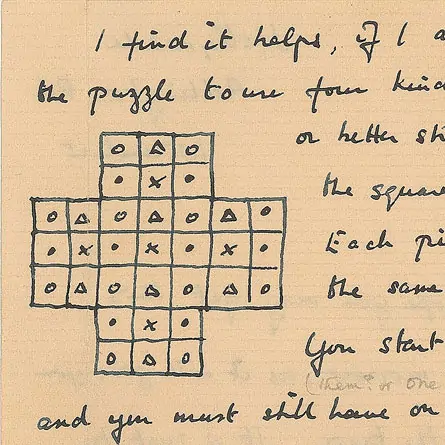 I find it helps, if I a
the puzzle to use four kind
or better sti
the square
Each pi
the same
You start
(them? or one
and you must still have on